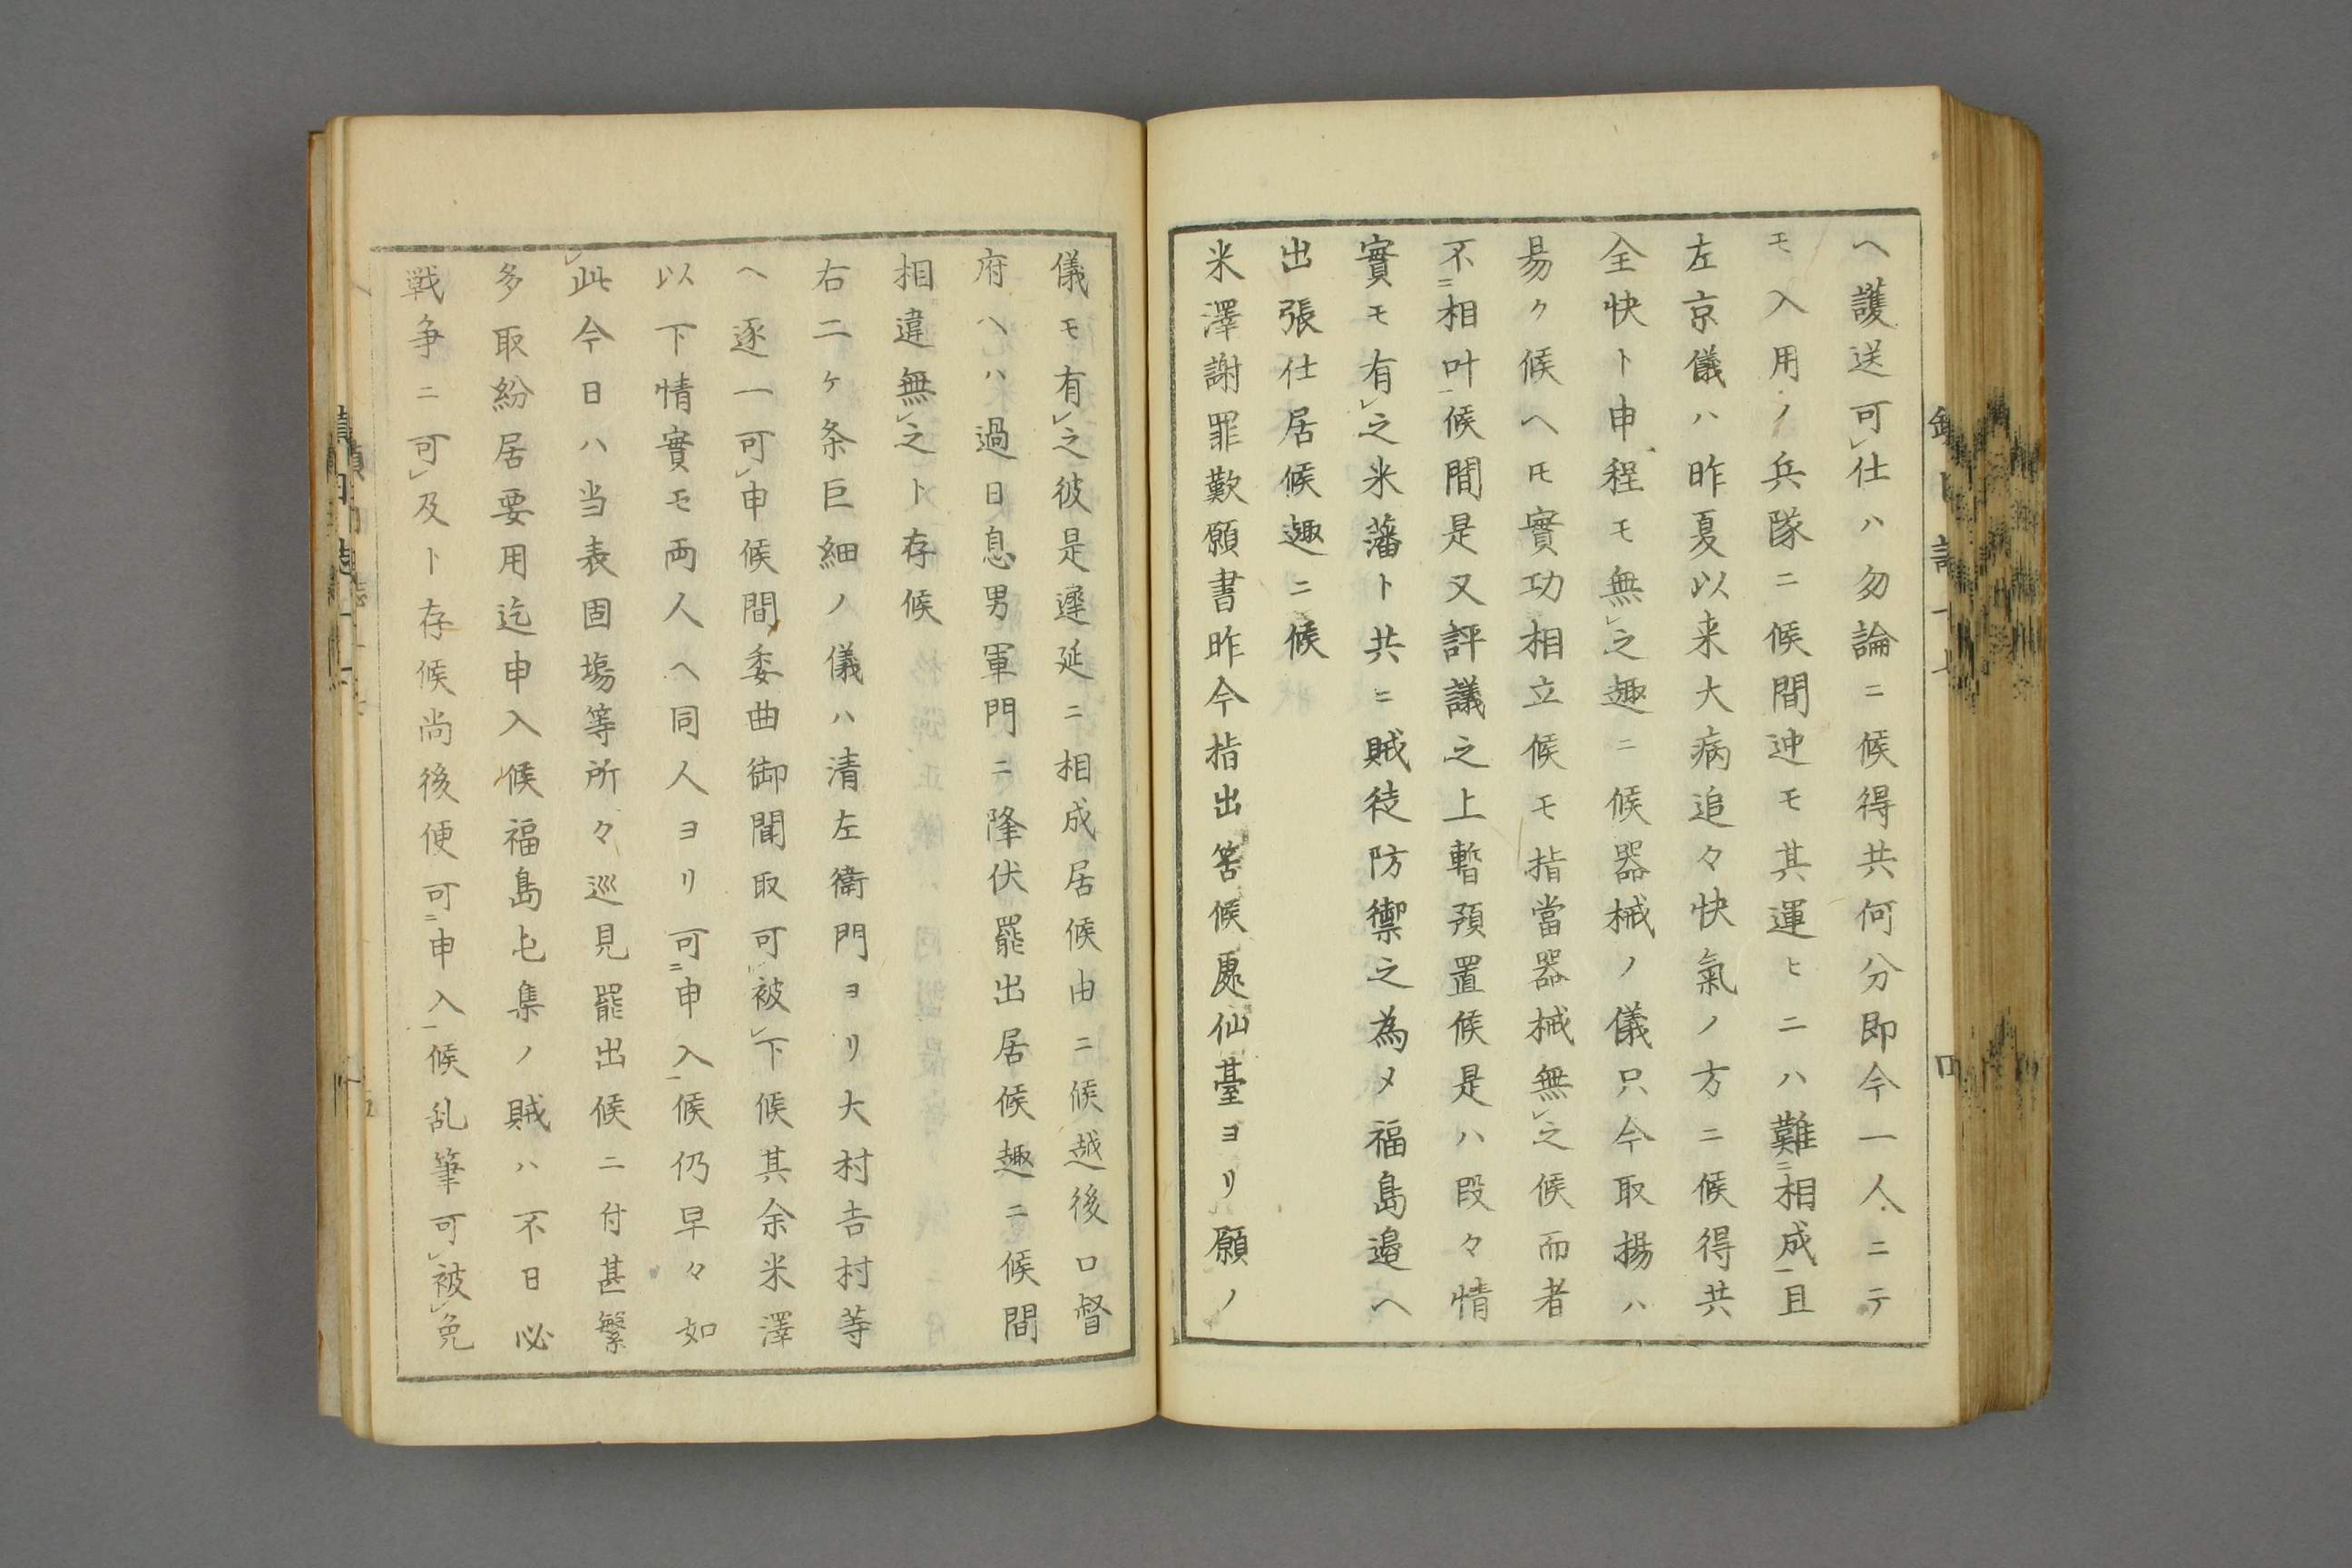 ヘ護送可㆑仕ハ勿論ニ候得共何分即今一人ニテ
モ入用ノ兵隊ニ候間迚モ其運ヒニハ難㆓相成㆒且
左京儀ハ昨夏以来大病追々快氣ノ方ニ候得共
全快ト申程モ無㆑之趣ニ候器械ノ儀只今取揚ハ
易ク候ヘ𪜈實功相立候モ指當器械無㆑之候而者
不㆓相叶㆒候間是又評議之上暫預置候是ハ段々情
實モ有㆑之米藩ト共ニ賊徒防禦之為メ福島邉ヘ
出張仕居候趣ニ候
米澤謝罪歎願書昨今指出筈候處仙臺ヨリ願ノ
儀モ有㆑之彼是遲延ニ相成居候由ニ候越後口督
府ヘハ過日息男軍門ニ降伏罷出居候趣ニ候間
相違無㆑之ト存候
右二ケ条巨細ノ儀ハ清左衛門ヨリ大村吉村等
ヘ逐一可㆑申候間委曲御聞取可㆑被㆑下候其余米澤
以下情實モ両人ヘ同人ヨリ可㆓申入㆒候仍早々如
㆑此今日ハ当表固塲等所々巡見罷出候ニ付甚繁
多取紛居要用迄申入候福島屯集ノ賊ハ不日必
戦争ニ可㆑及ト存候尚後便可㆓申入㆒候乱筆可㆑被㆑免